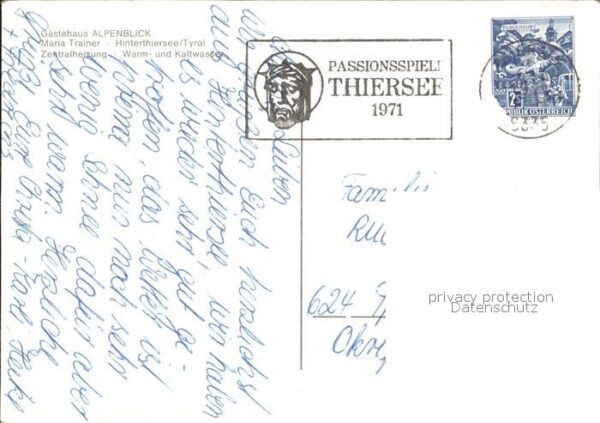 Gästehaus ALPENBLICK
Maria Trainer · Hinterthiersee/Tyrol
Zentralheizung · Warm- und Kaltwasser
PASSIONSSPIELE
THIERSEE
1971
KLAGENFURT
2S
REPUBLIK ÖSTERREICH
6335
Ihr Lieben
Wir grüßen Euch herzlichst
aus Hinterthiersee, wir haben
es wieder sehr gut ge-
troffen, das Wetter ist
prima, nur noch sehr
wenig Schnee dafür aber
sehr warm. Herzliche
Grüße Eure Christa Karl
Familie
624
privacy protection
Datenschutz